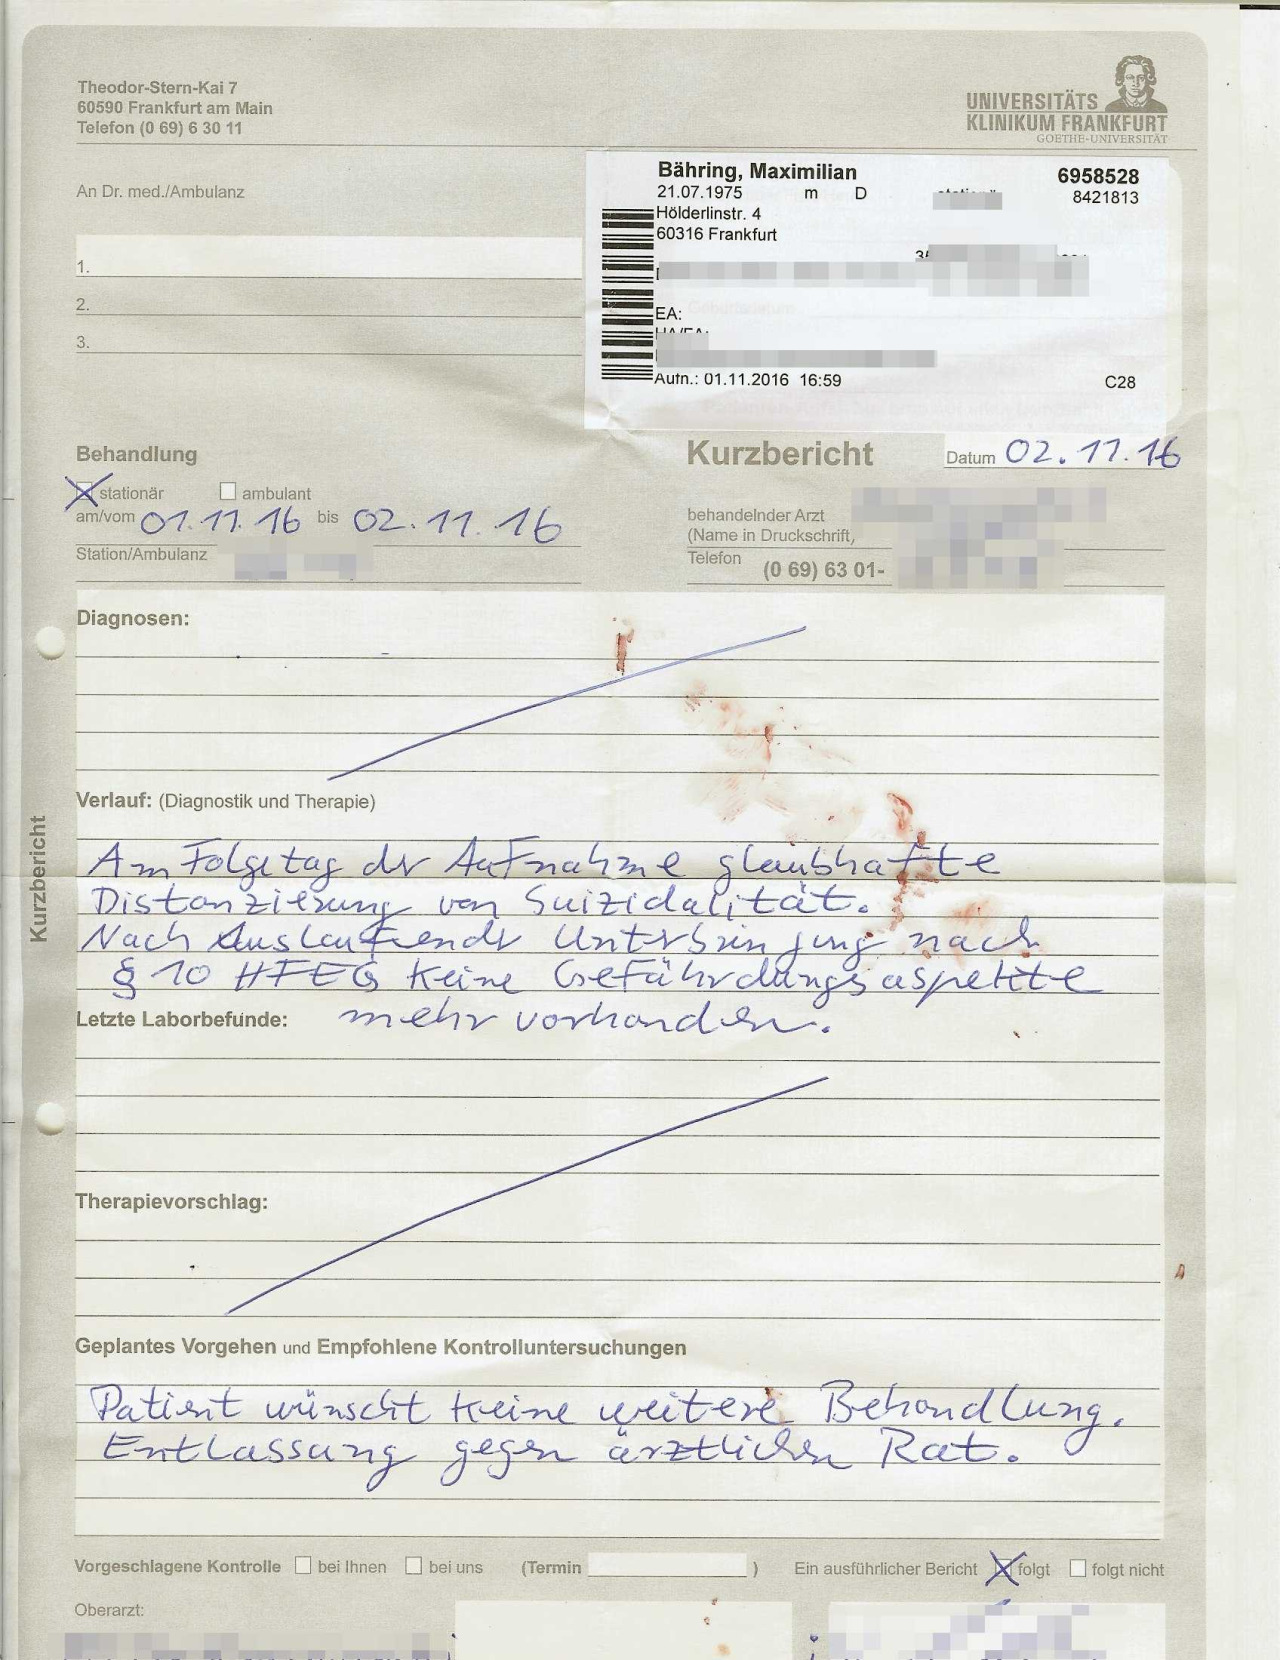 Theodor-Stern-Kai 7
60590 Frankfurt am Main
Telefon (0 69) 6 30 11
UNIVERSITÄTS
KLINIKUM FRANKFURT
GOETHE-UNIVERSITÄT
An Dr. med./Ambulanz
1.
2.
3.
Bähring, Maximilian 6958528
21.07.1975 m D 8421813
Hölderlinstr. 4
60316 Frankfurt
EA:
HA/EA:
Aufn.: 01.11.2016 16:59 C28
Behandlung
Kurzbericht Datum 02.11.16
stationär ambulant
am/vom 01.11.16 bis 02.11.16
behandelnder Arzt
(Name in Druckschrift,
Station/Ambulanz
Telefon (0 69) 63 01-
Kurzbericht
Diagnosen:
Verlauf: (Diagnostik und Therapie)
Am Folgetag der Aufnahme glaubhafte
Distanzierung von Suizidalität.
Nach Auslaufender Unterbringung nach
§ 10 HFEG keine Gefährdungsaspekte
Letzte Laborbefunde: mehr vorhanden.
Therapievorschlag:
Geplantes Vorgehen und Empfohlene Kontrolluntersuchungen
Patient wünscht keine weitere Behandlung.
Entlassung gegen ärztlichen Rat.
Vorgeschlagene Kontrolle bei Ihnen bei uns (Termin ) Ein ausführlicher Bericht folgt folgt nicht
Oberarzt: